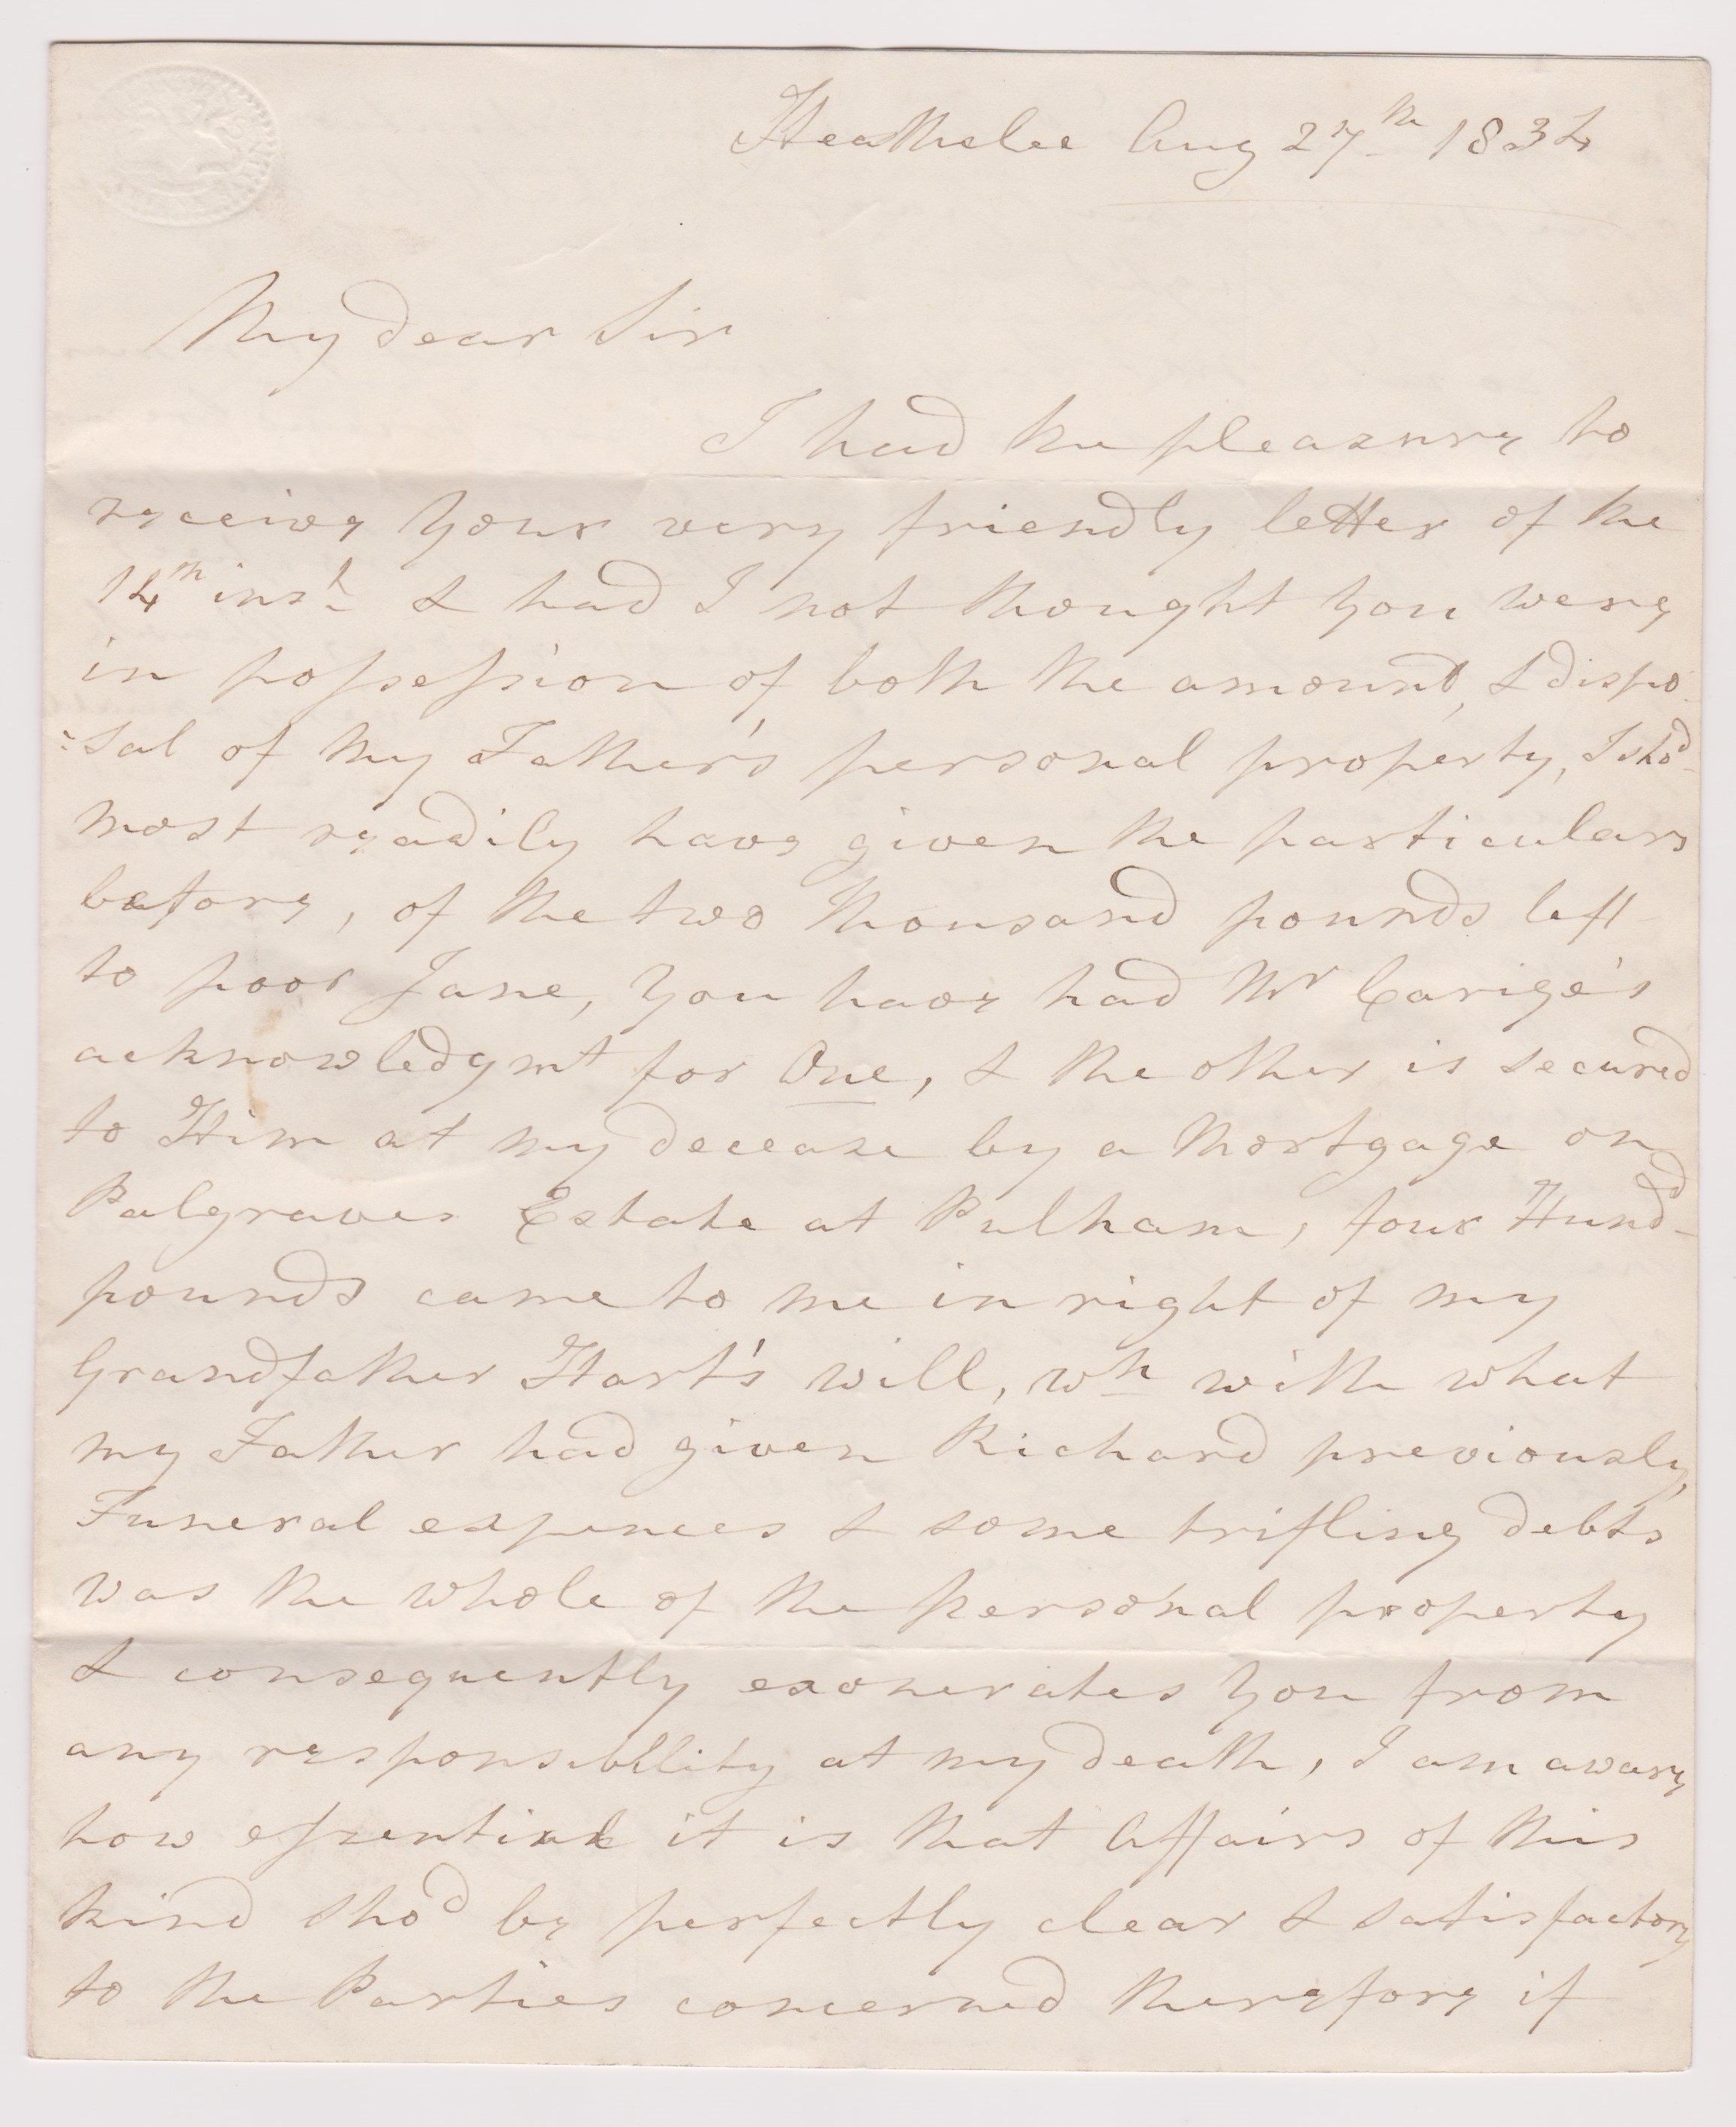 Heathelee Aug 27th 1834
My dear Sir
I had the pleasure to
receive your very friendly letter of the
14th inst & had I not thought you were
in possession of both the amount, & dispo-
=sal of my Father's personal property, I shod
most readily have given the particulars
before, of the two thousand pounds left
to poor Jane, you have had Mr Carige's
acknowledgmt for One, & the other is secured
to Him at my decease by a Mortgage on
Palgraves Estate at Pulham, four Hundd
pounds came to me in right of my
Grandfather Hart's will, wh with what
my Father had given Richard previously,
Funeral expences & some trifling debts
was the whole of the personal property
& consequently exonerates you from
any responsibility at my death, I am aware
how essential it is that Affairs of this
kind shod be perfectly clear & satisfactory
to the Parties concerned therefore if